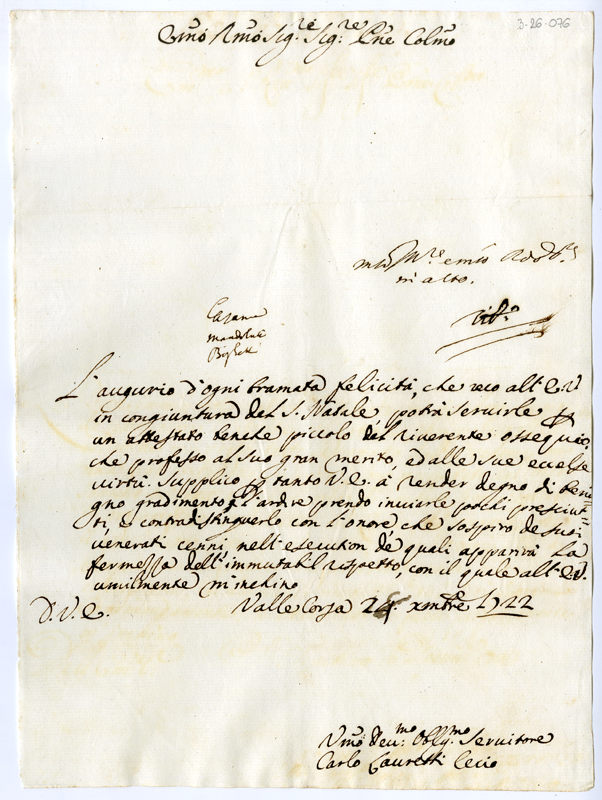 3-26-076
Emo Rmo Sig.re Sig.re Pne Colmo
in alto.
L'augurio d'ogni bramata felicità, che reco all'E.V.
in congiuntura del S. Natale potrà servirle
un attestato benche piccolo del riverente ossequio
che professo al suo gran merito, ed alle sue eccelse
virtù. Supplico tanto V.E. à render degno di beni=
gno gradimento l'ardire prendo inviarle pochi presciut=
ti, e contradistinguerlo con l'onore che sospiro de suoi
venerati cenni, nell'esecution de quali apparirà la
fermezza dell'immutabil rispetto, con il quale all'E.V.
umilmente m'inchino
D.V.E. Valle Corsa 24 xmbre 1722
Umo Devmo Obligmo Servitore
Carlo Lauretti Cecio